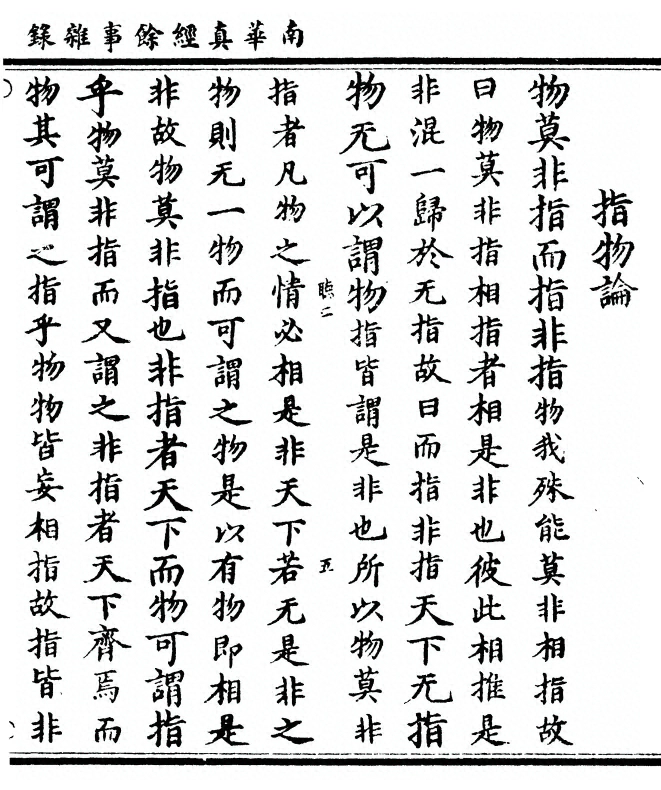 南華真經餘事雜錄
指物論
物莫非指而指非指物我殊能莫非相指故
曰物莫非指相指者相是非也彼此相推是
非混一歸於无指故曰而指非指天下无指
物无可以謂物指皆謂是非也所以物莫非
指者凡物之情必相是非天下若无是非之
物則无一物而可謂之物是以有物即相是
非故物莫非指也非指者天下而物可謂指
乎物莫非指而又謂之非指者天下齊焉而
物其可謂之指乎物物皆妄相指故指皆非
五